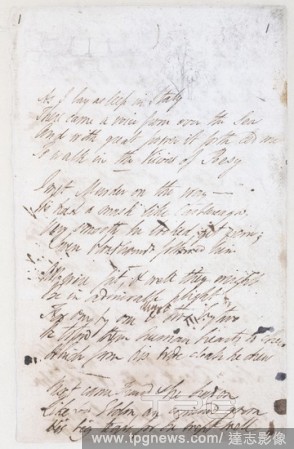 1 1
As I lay asleep in Italy
There came a voice from over the Sea
And with great power it forth led me
To walk in the Visions of Poesy
I met Murder on the way
He had a mask like Castlereagh
Very smooth he looked, yet grim;
Seven bloodhounds followed him
All were fat; & well they might
Be in admirable plight
For one by one &
He tossed them human hearts to chew
Which from his wide cloak he drew
Next came Fraud & he had on
Like Eldon an ermined gown
His big tears for he wept well
www.tpgnews.com / 達志影像